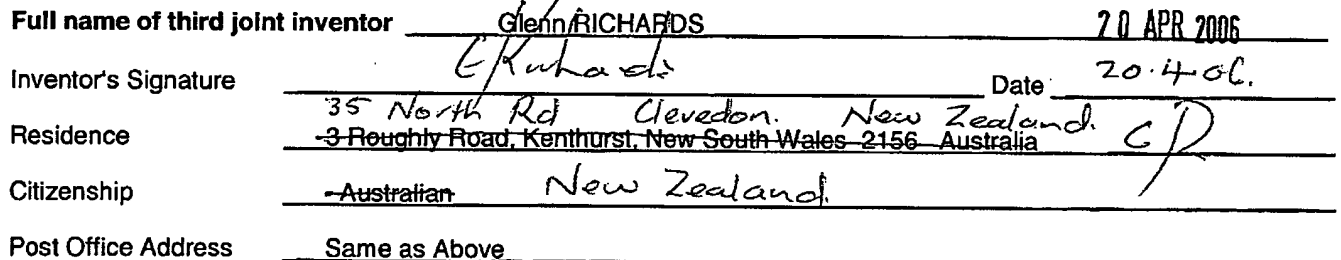 Full name of third joint inventor Glenn RICHARDS 20 APR 2006
Inventor's Signature Date 20.4.06.
35 North Rd Clevedon. New Zealand.
Residence 3 Roughly Road, Kenthurst, New South Wales 2156 Australia GR
Citizenship Australian New Zealand.
Post Office Address Same as Above